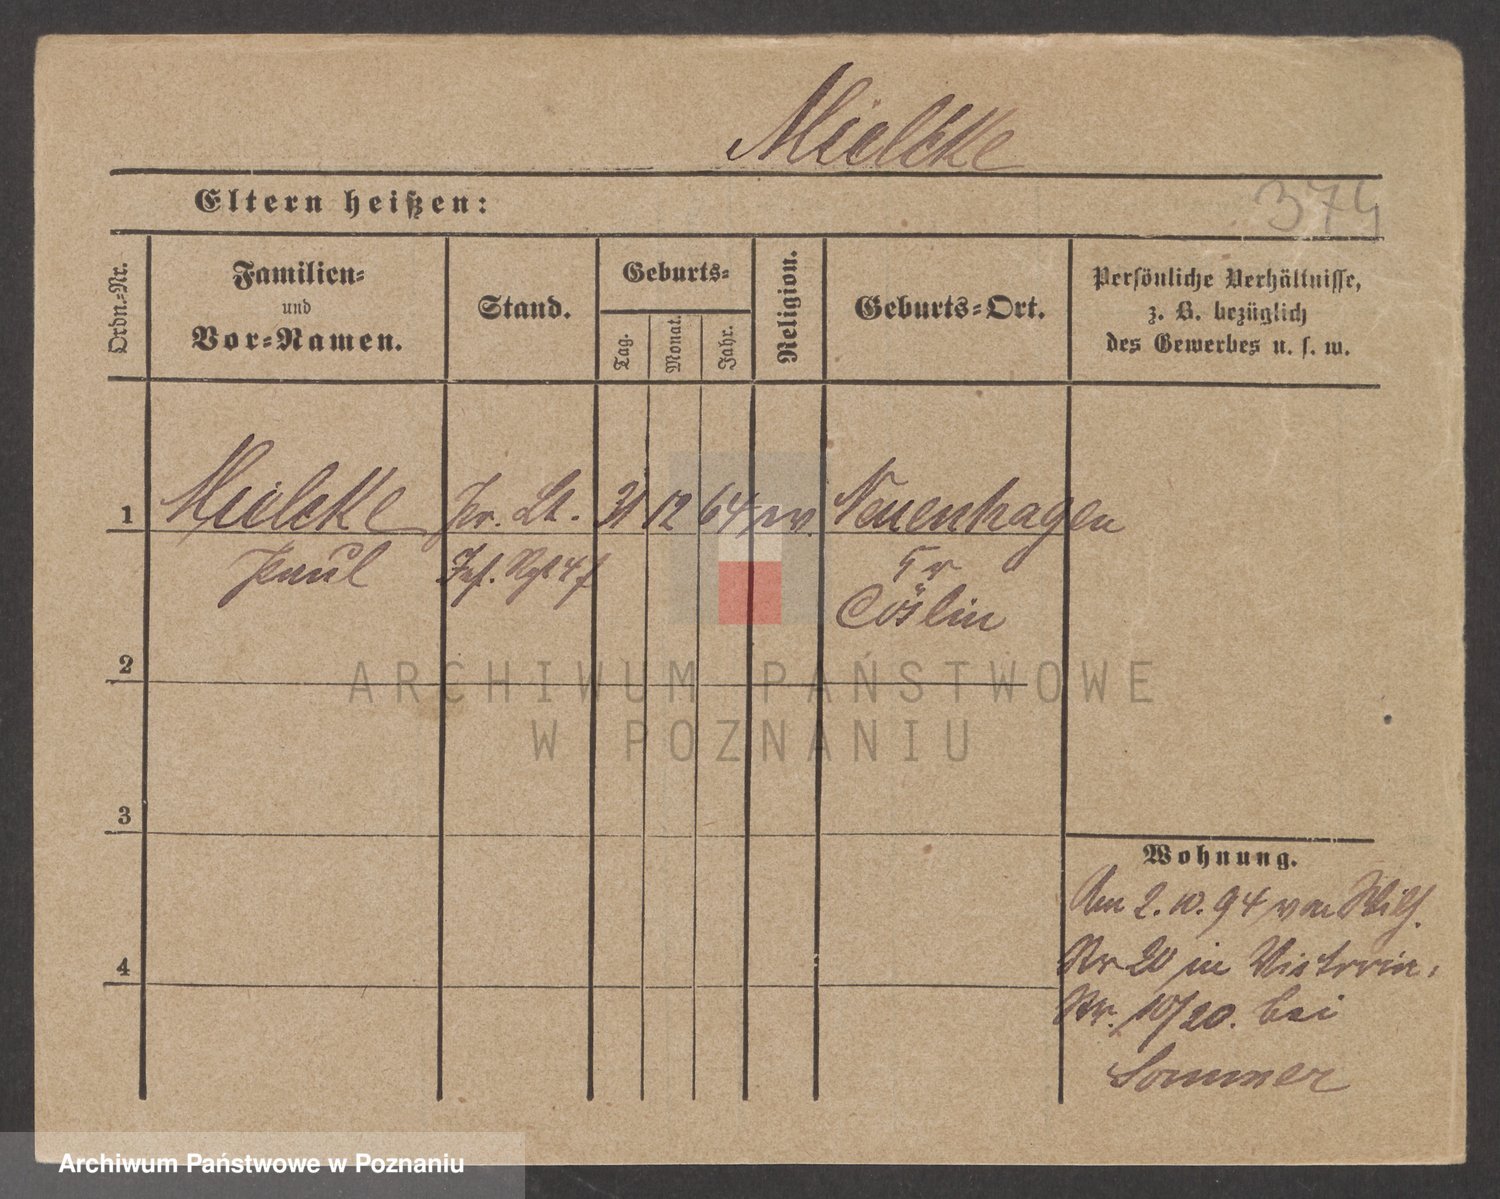 Mielcke
Eltern heißen:
374
Ordn.-Nr.
Familien-
und
Vor-Namen.
Stand.
Geburts-
Tag.
Monat.
Jahr.
Religion.
Geburts-Ort.
Persönliche Verhältnisse,
z. B. bezüglich
des Gewerbes u. s. w.
1 Mielcke Pr. Lt. 31 12 64 ev. Neuenhagen
Paul Inf. Rgt 47 Kr
Cöslin
2
3
4
Wohnung.
Am 2.10.94 von Wilh.
Str 20 in Victoria,
Str. 19/20. bei
Sommer
ARCHIWUM PAŃSTWOWE
W POZNANIU
Archiwum Państwowe w Poznaniu